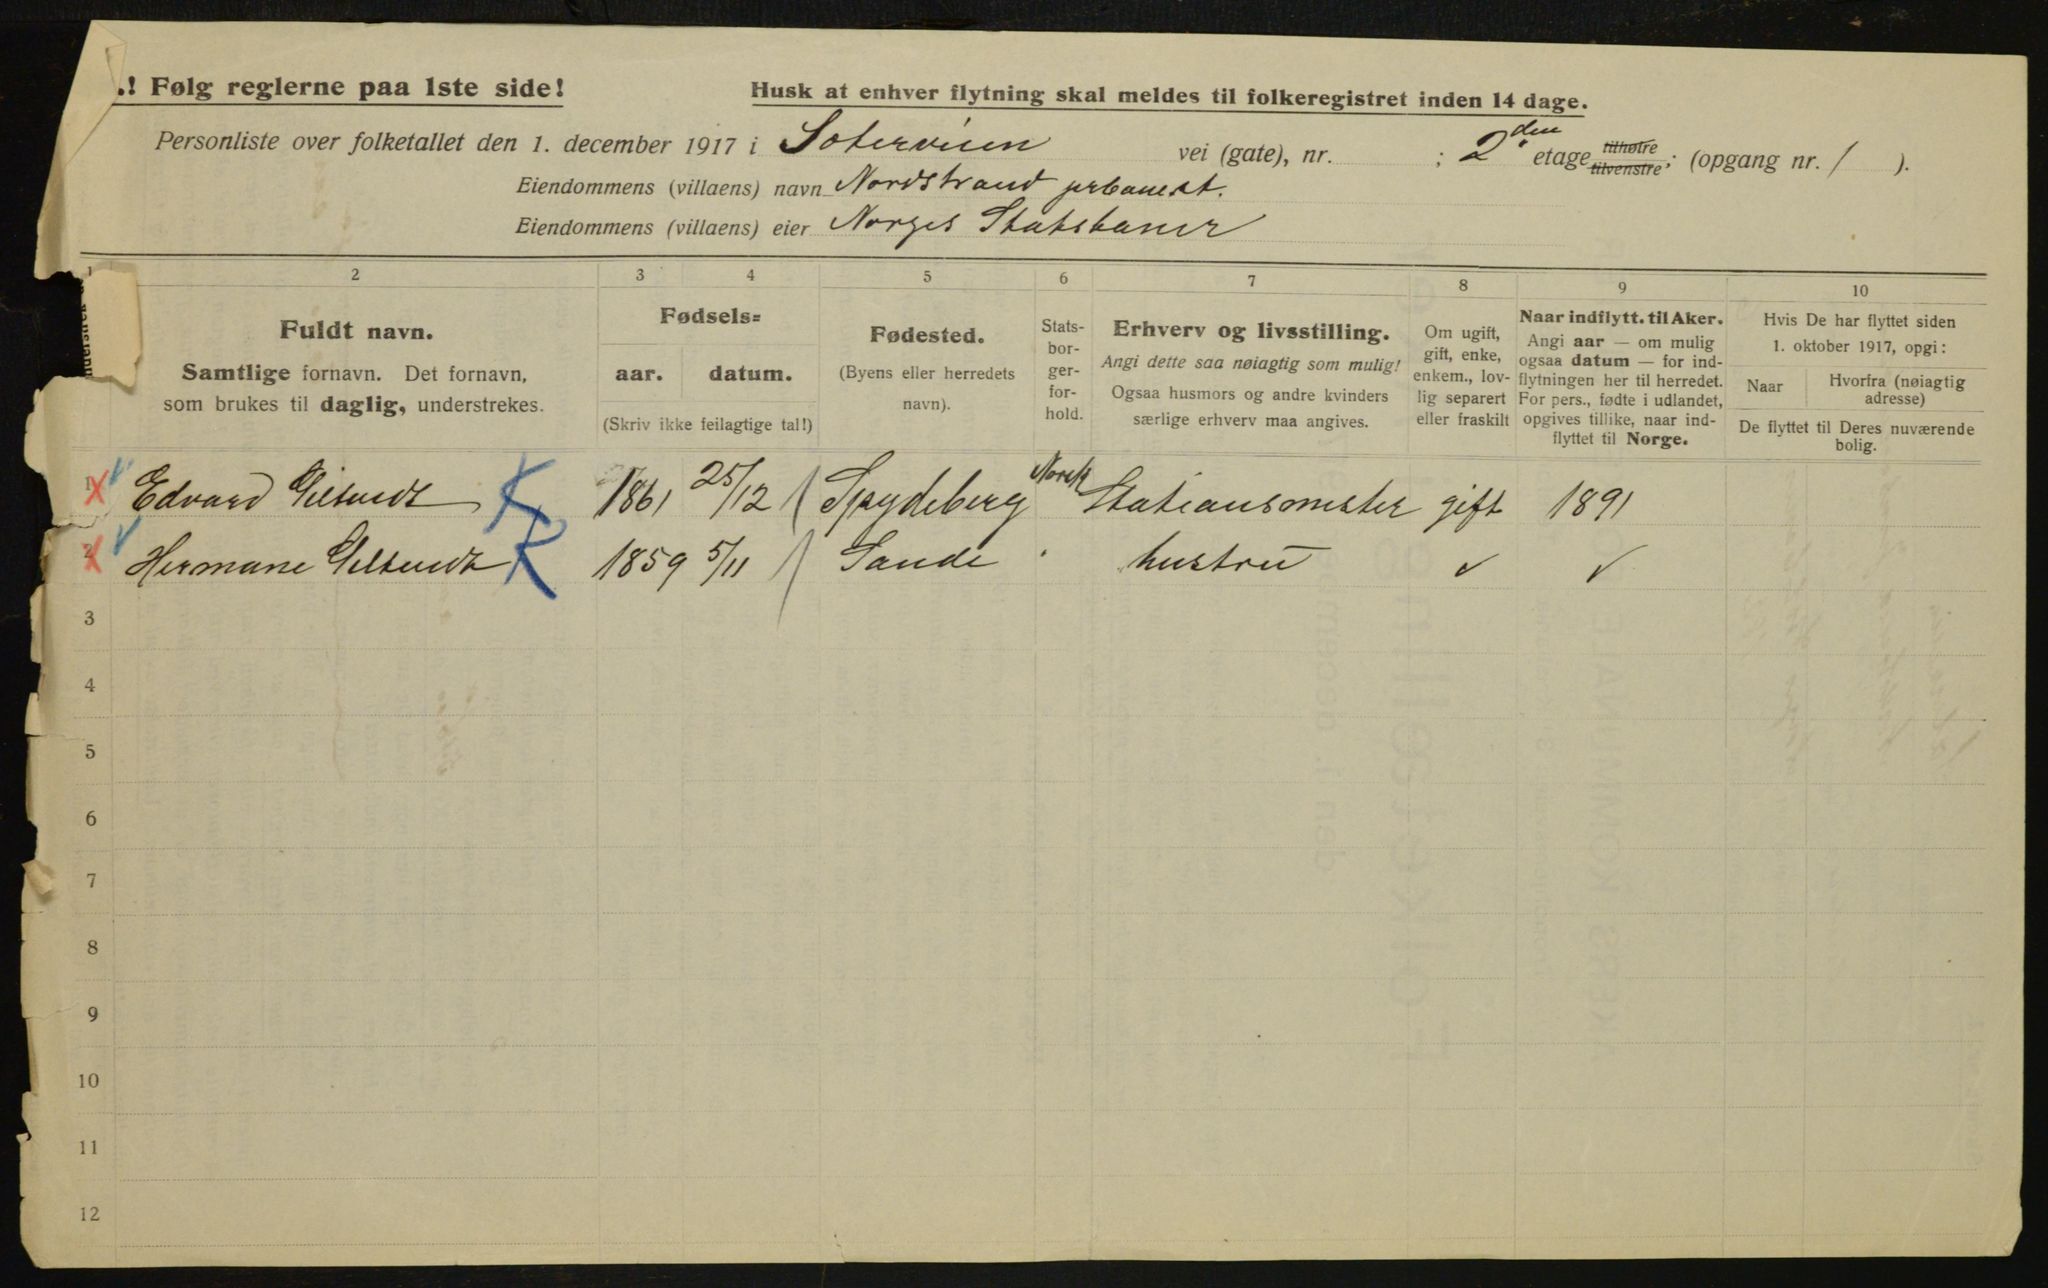 .! Følg reglerne paa 1ste side!
Husk at enhver flytning skal meldes til folkeregistret inden 14 dage.
Personliste over folketallet den 1. december 1917 i Solerveien vei (gate), nr. ; 2den etage tilhøire tilvenstre; (opgang nr. / ).
Eiendommens (villaens) navn Nordstrand jrbanest.
Eiendommens (villaens) eier Norges Statsbaner
1 2 3 4 5 6 7 8 9 10
Fuldt navn.
Samtlige fornavn. Det fornavn,
som brukes til daglig, understrekes.
Fødsels=
aar. datum.
(Skriv ikke feilagtige tal!)
Fødested.
(Byens eller herredets
navn).
Stats-
bor-
ger-
for-
hold.
Erhverv og livsstilling.
Angi dette saa nøiagtig som mulig!
Ogsaa husmors og andre kvinders
særlige erhverv maa angives.
Om ugift,
gift, enke,
enkem., lov-
lig separert
eller fraskilt
Naar indflytt. til Aker.
Angi aar — om mulig
ogsaa datum — for ind-
flytningen her til herredet.
For pers., fødte i udlandet,
opgives tillike, naar ind-
flyttet til Norge.
Hvis De har flyttet siden
1. oktober 1917, opgi:
Naar
Hvorfra (nøiagtig
adresse)
De flyttet til Deres nuværende
bolig.
1 Edvard K 1861 25/12 Spydeberg Norsk Stationsmester gift 1891
2 Hermane R 1859 5/11 Sande hustru
3
4
5
6
7
8
9
10
11
12